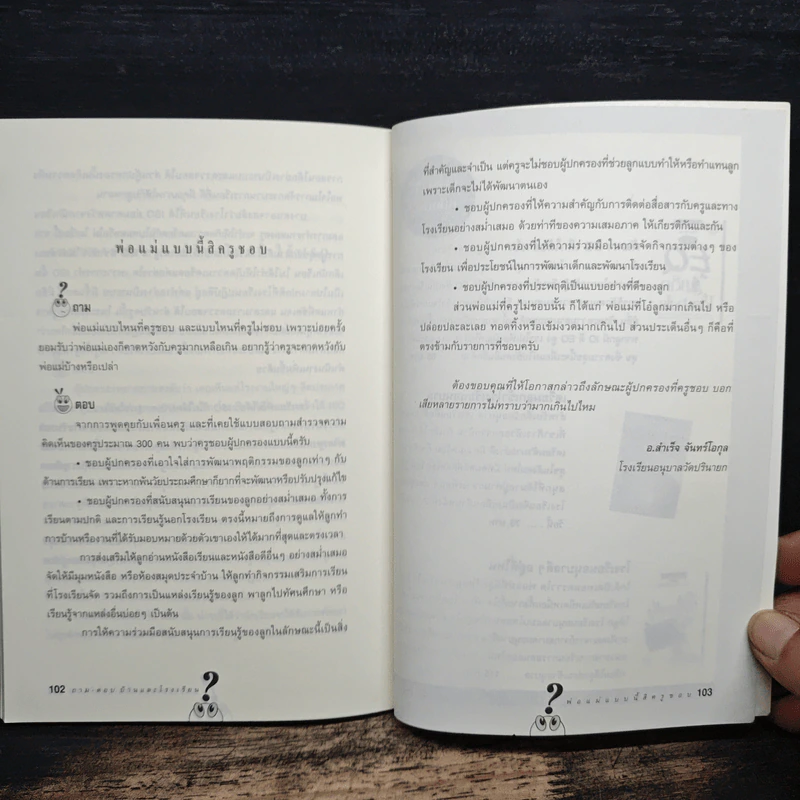 พ่อแม่แบบนี้สิครูชอบ
?
ถาม
พ่อแม่แบบไหนที่ครูชอบ และแบบไหนที่ครูไม่ชอบ เพราะบ่อยครั้ง
ยอมรับว่าพ่อแม่เองก็คาดหวังกับครูมากเหลือเกิน อยากรู้ว่าครูจะคาดหวังกับ
พ่อแม่บ้างหรือเปล่า
ตอบ
จากการพูดคุยกับเพื่อนครู และที่เคยใช้แบบสอบถามสำรวจความ
คิดเห็นของครูประมาณ 300 คน พบว่าครูชอบผู้ปกครองแบบนี้ครับ
• ชอบผู้ปกครองที่เอาใจใส่การพัฒนาพฤติกรรมของลูกเท่าๆ กับ
ด้านการเรียน เพราะหากพ้นวัยประถมศึกษาก็ยากที่จะพัฒนาหรือปรับปรุงแก้ไข
• ชอบผู้ปกครองที่สนับสนุนการเรียนของลูกอย่างสม่ำเสมอ ทั้งการ
เรียนตามปกติ และการเรียนรู้นอกโรงเรียน ตรงนี้หมายถึงการดูแลให้ลูกทำ
การบ้านหรืองานที่ได้รับมอบหมายด้วยตัวเขาเองให้ได้มากที่สุดและตรงเวลา
การส่งเสริมให้ลูกอ่านหนังสือเรียนและหนังสือดีอื่นๆ อย่างสม่ำเสมอ
จัดให้มีมุมหนังสือ หรือห้องสมุดประจำบ้าน ให้ลูกทำกิจกรรมเสริมการเรียน
ที่โรงเรียนจัด รวมถึงการเป็นแหล่งเรียนรู้ของลูก พาลูกไปทัศนศึกษา หรือ
เรียนรู้จากแหล่งอื่นบ่อยๆ เป็นต้น
การให้ความร่วมมือสนับสนุนการเรียนรู้ของลูกในลักษณะนี้เป็นสิ่ง
102 ถาม-ตอบ บ้านและโรงเรียน ?
ที่สำคัญและจำเป็น แต่ครูจะไม่ชอบผู้ปกครองที่ช่วยลูกแบบทำให้หรือทำแทนลูก
เพราะเด็กจะไม่ได้พัฒนาตนเอง
• ชอบผู้ปกครองที่ให้ความสำคัญกับการติดต่อสื่อสารกับครูและทาง
โรงเรียนอย่างสม่ำเสมอ ด้วยท่าทีของความเสมอภาค ให้เกียรติกันและกัน
• ชอบผู้ปกครองที่ให้ความร่วมมือในการจัดกิจกรรมต่างๆ ของ
โรงเรียน เพื่อประโยชน์ในการพัฒนาเด็กและพัฒนาโรงเรียน
• ชอบผู้ปกครองที่ประพฤติเป็นแบบอย่างที่ดีของลูก
ส่วนพ่อแม่ที่ครูไม่ชอบนั้น ก็ได้แก่ พ่อแม่ที่โอ๋ลูกมากเกินไป หรือ
ปล่อยปละละเลย ทอดทิ้งหรือเข้มงวดมากเกินไป ส่วนประเด็นอื่นๆ ก็คือที่
ตรงข้ามกับรายการที่ชอบครับ
ต้องขอบคุณที่ให้โอกาสกล่าวถึงลักษณะผู้ปกครองที่ครูชอบ บอก
เสียหลายรายการไม่ทราบว่ามากเกินไปไหม
อ.สำเร็จ จันทร์โอกุล
โรงเรียนอนุบาลวัดปรินายก
? พ่อแม่แบบนี้สิครูชอบ 103